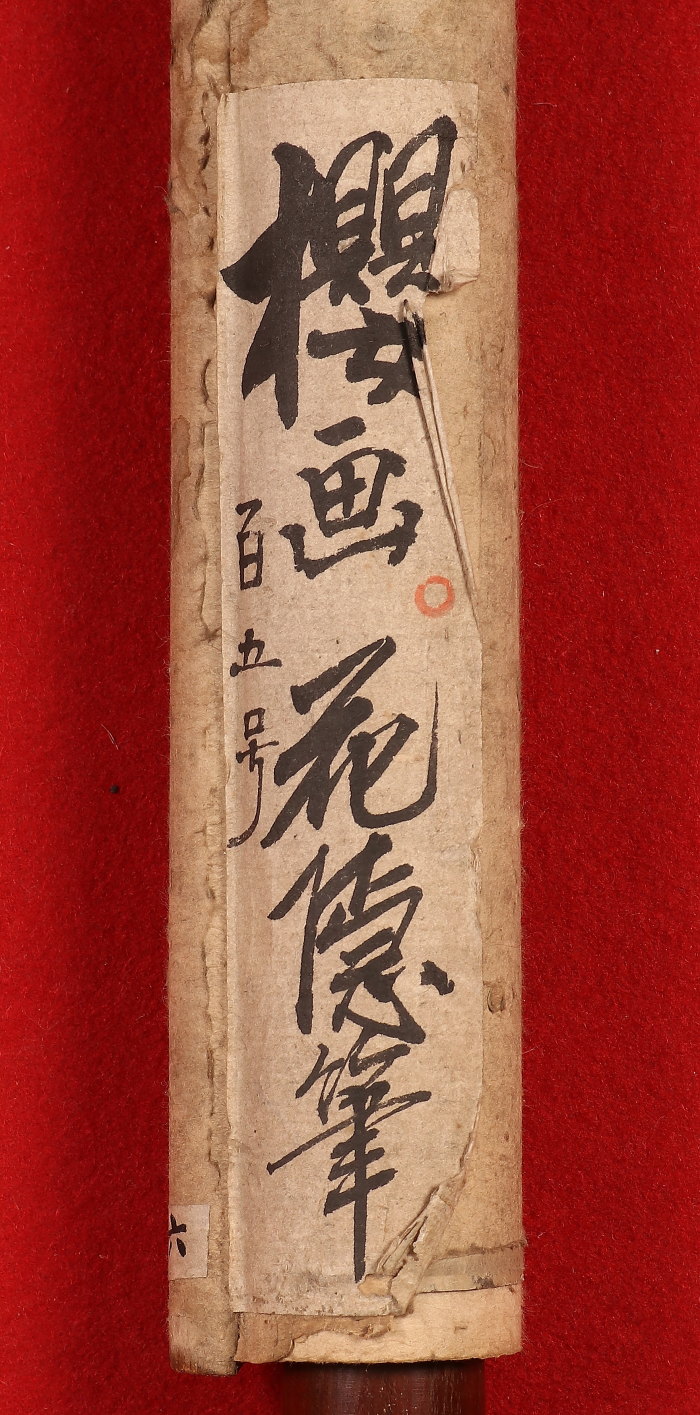 櫻画 花隠筆
百五号
六